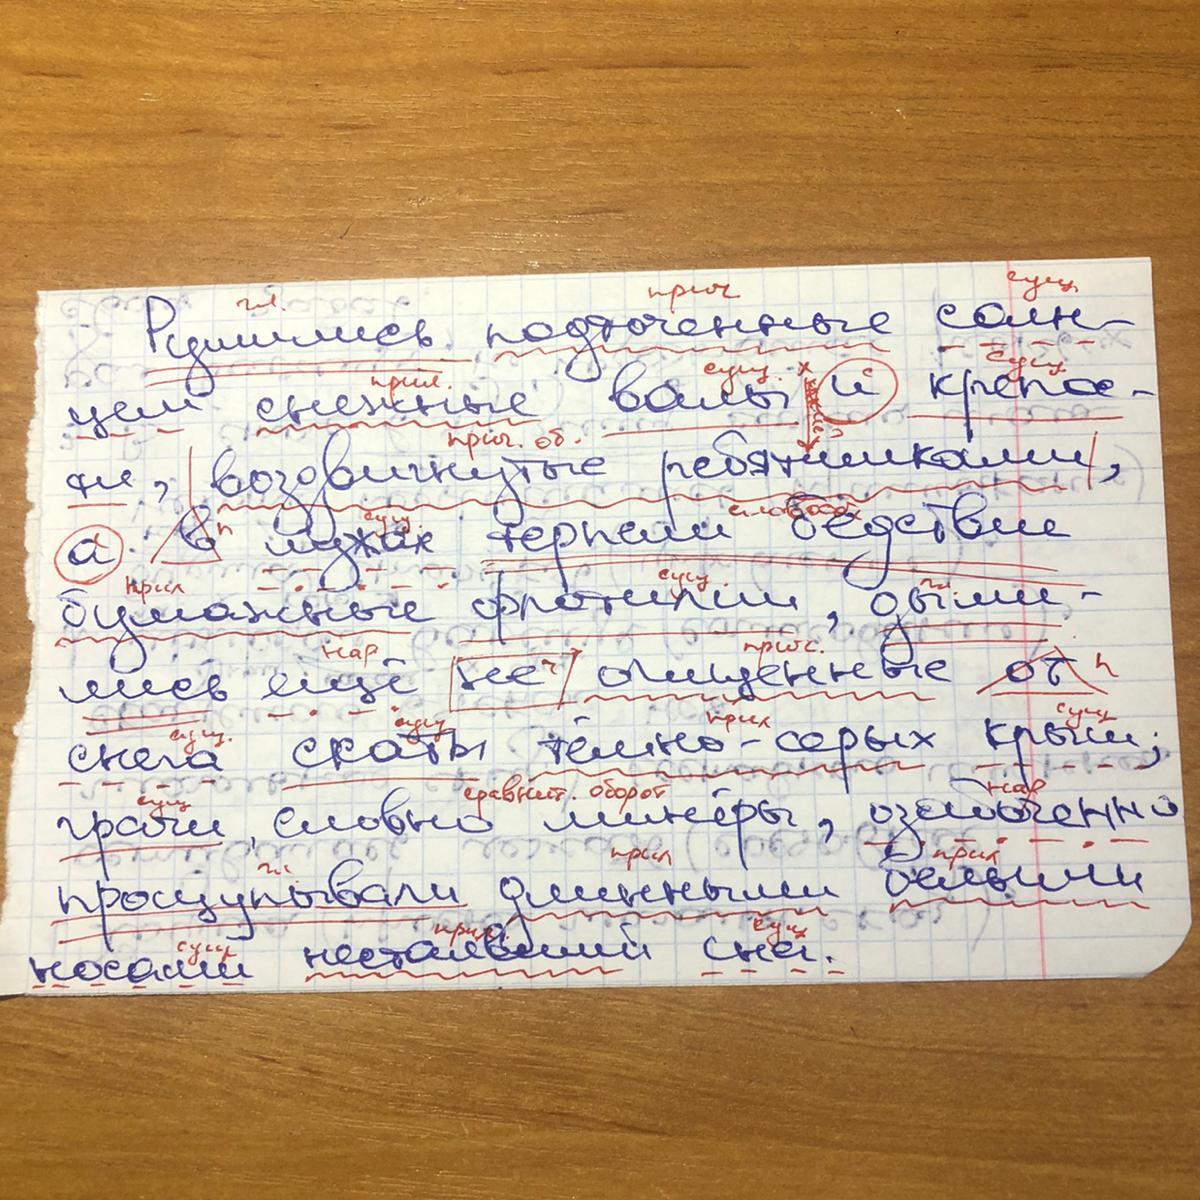 гл. прич сущ
Рушились подточенные солн-
прил. сущ. х с сущ
цем снежные валы и крепос-
прич. об.
ти, воздвигнутые ребятишками,
п сущ.
а в лужах терпели бедствие
прил сущ. гл.
бумажные флотилии, дыми-
нар ч прич. п
лись ещё не очищенные от
сущ. сущ прил сущ
снега скаты тёмно-серых крыш;
сущ сравнит. оборот нар
грачи, словно минёры, озабоченно
гл. прил прил
прощупывали длинными белыми
сущ прил. сущ
носами нестаявший снег.